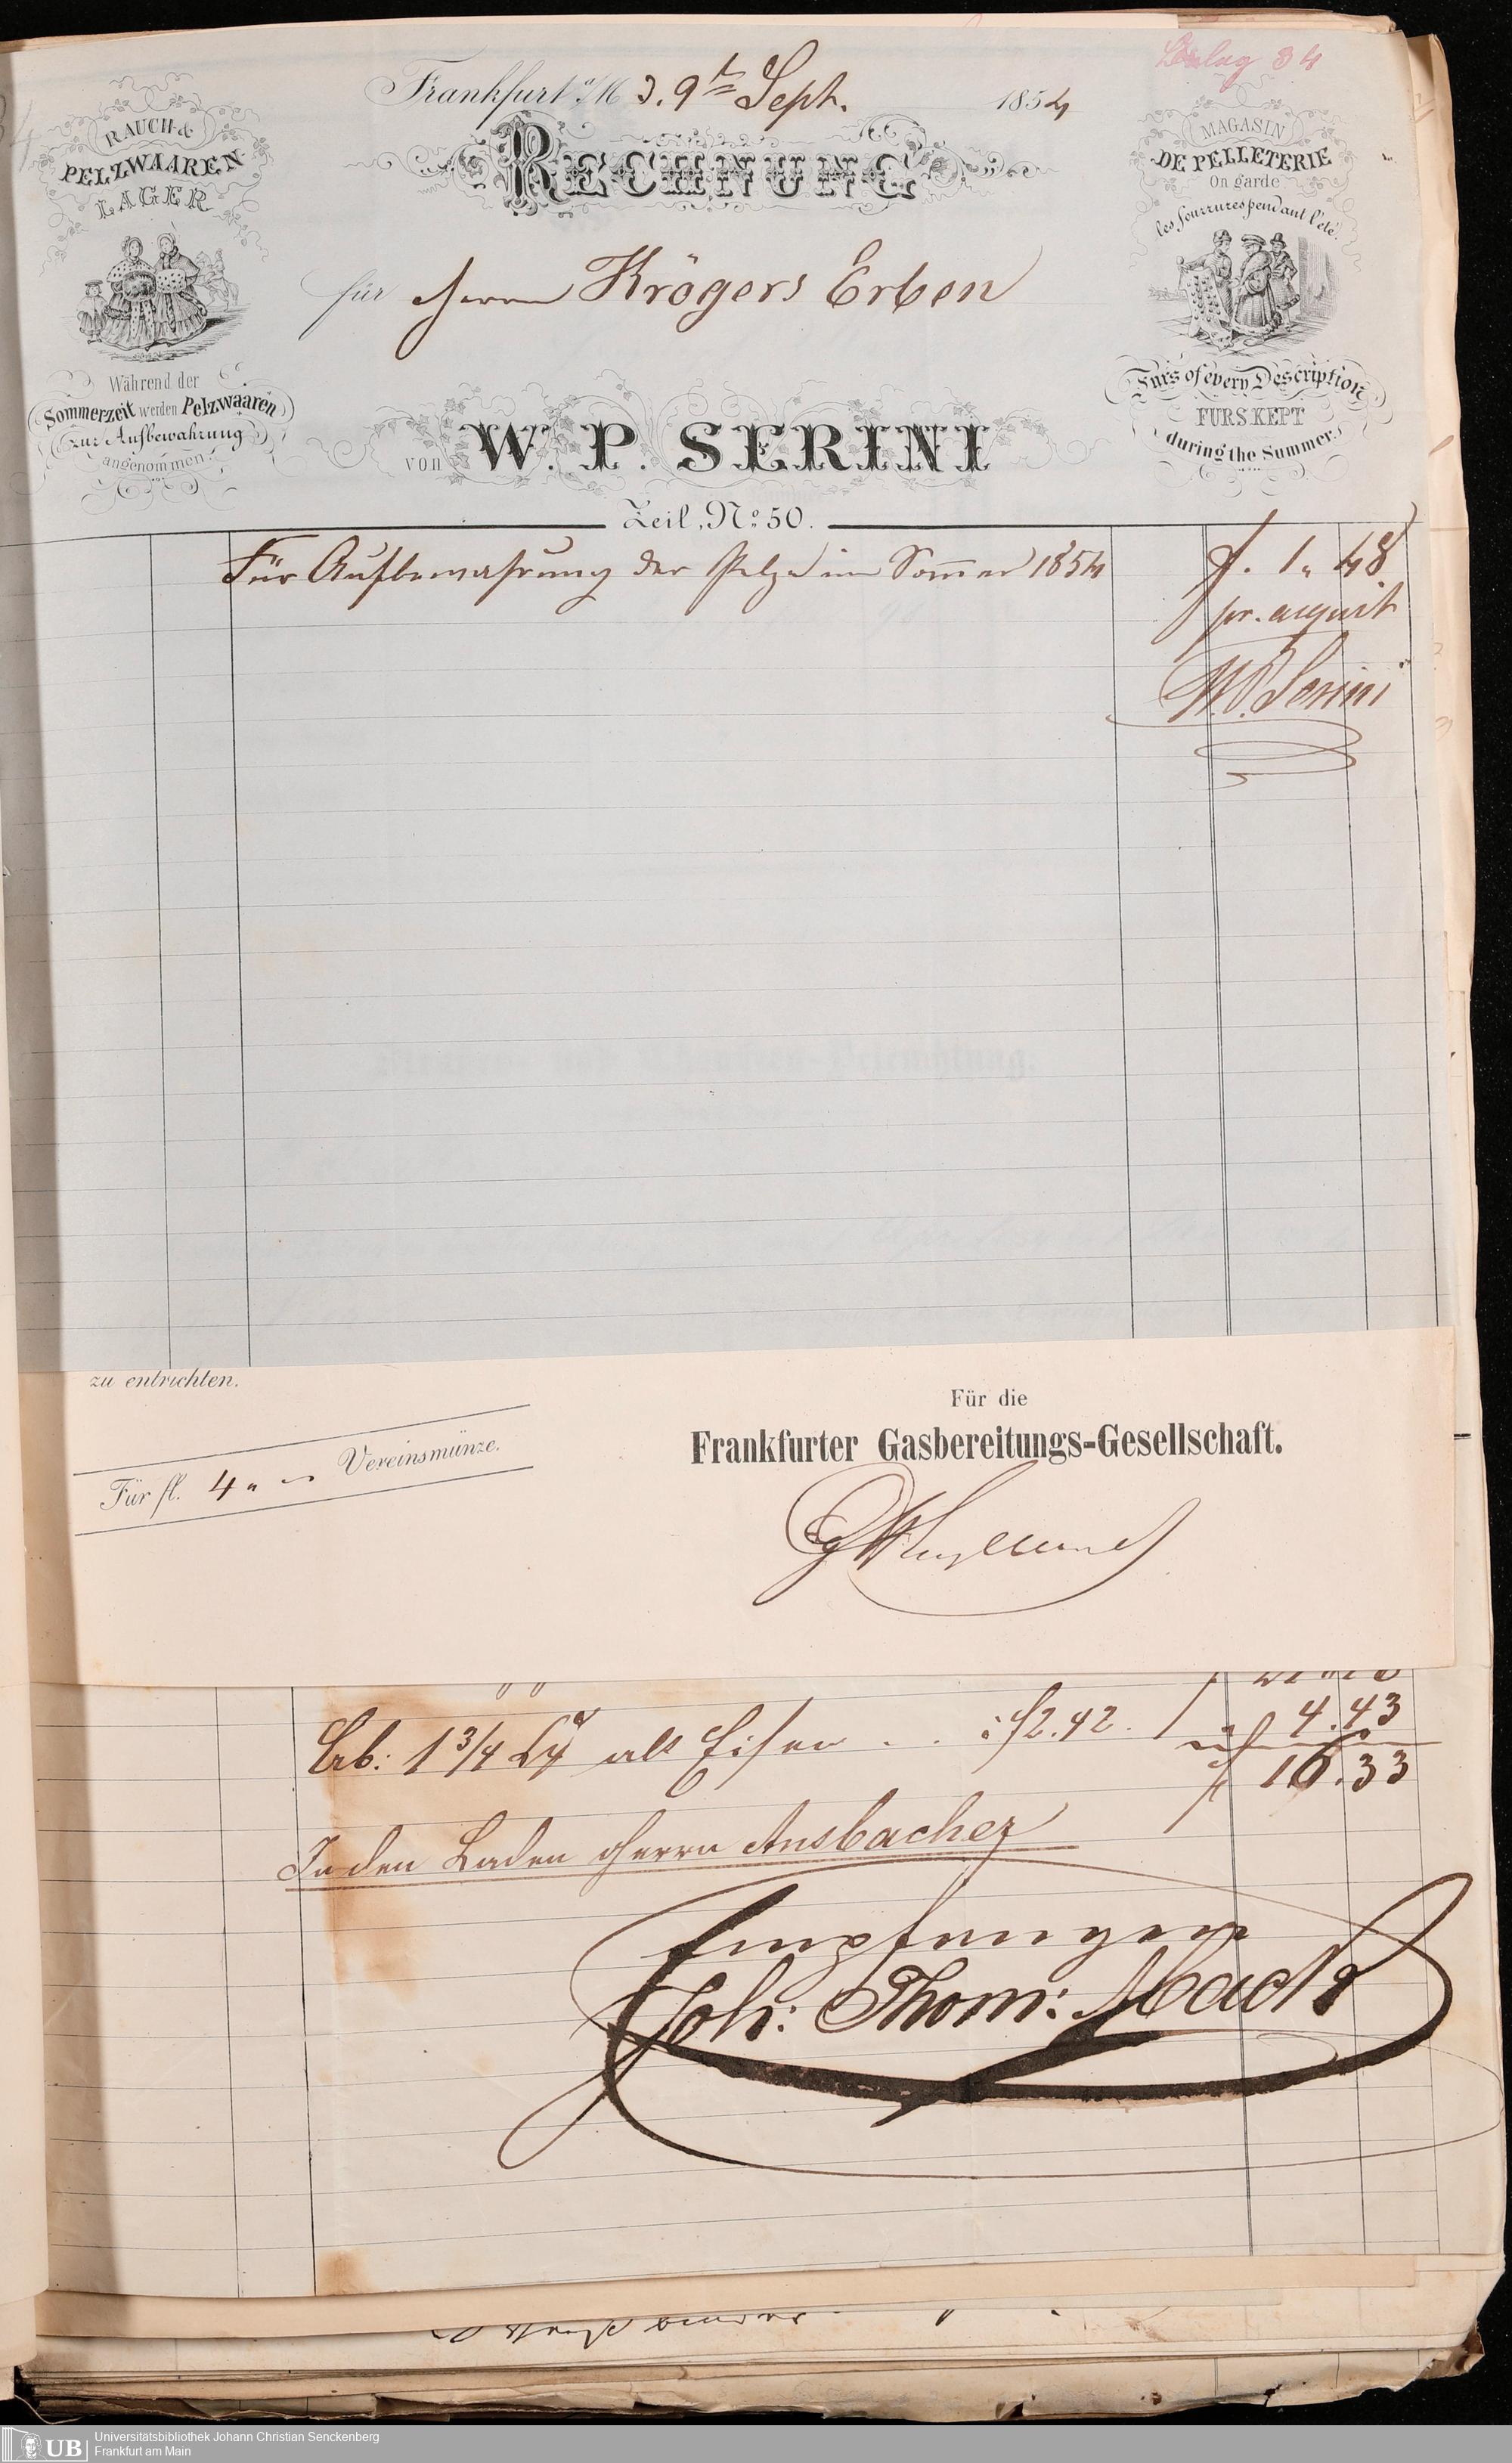 Belag 34
Frankfurt a/M d. 9t Sept. 1854
RAUCH- &
PELZWAAREN
LAGER
Während der
Sommerzeit werden Pelzwaaren
zur Aufbewahrung
angenommen.
RECHNUNG
für Herrn Krögers Erben
VON W. P. SERINI
Zeil, No 50.
MAGASIN
DE PELLETERIE
On garde
les fourrures pendant l'été.
Furs of every Description
FURS KEPT
during the Summer.
Für Aufbewahrung der Pelze im Sommer 1854 f. 1 „ 48
pr. acquit
W. P. Serini
zu entrichten.
Für fl. 4 „ — Vereinsmünze.
Für die
Frankfurter Gasbereitungs-Gesellschaft.
ab: 1 3/4 alt Eisen . . : f 2.42. 4.43
f 16.33
In den Laden Herrn Ansbacher
Empfangen
Joh: Thom: Mack
Universitätsbibliothek Johann Christian Senckenberg
Frankfurt am Main
UB